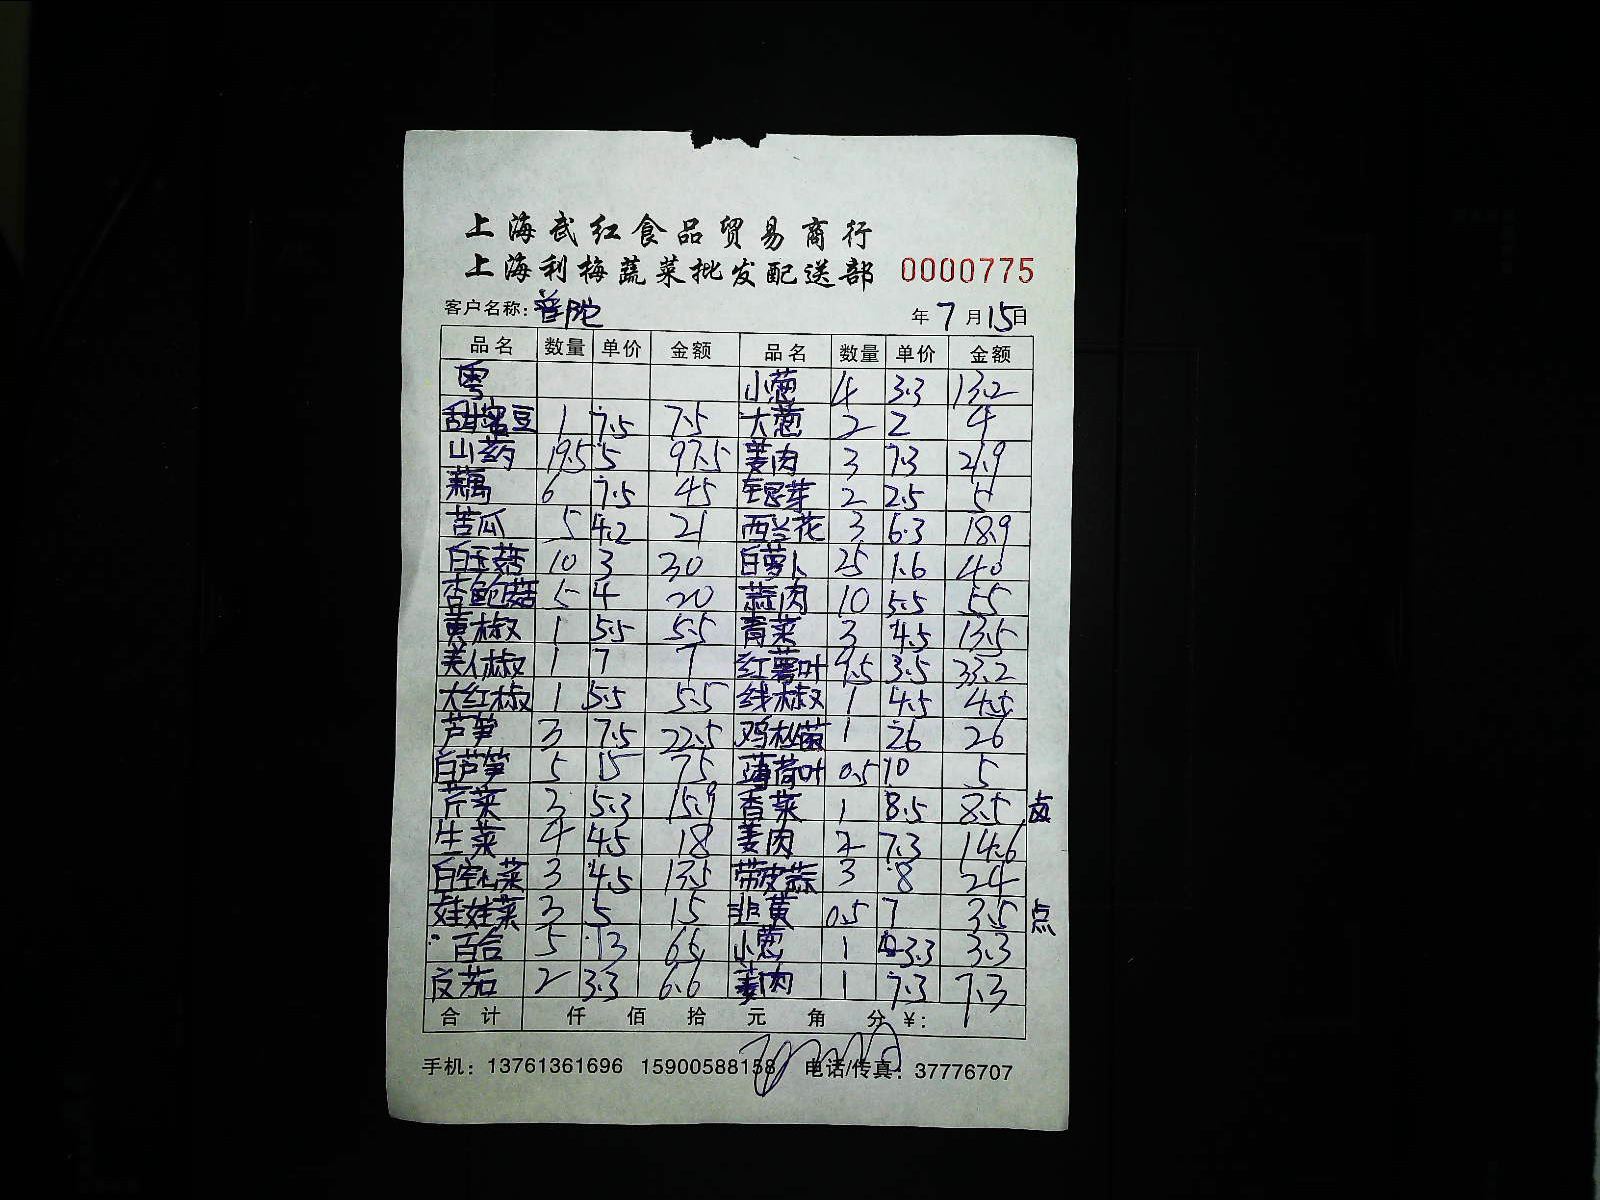 上海武红食品贸易商行
上海利梅蔬菜批发配送部 0000775
客户名称: 普陀 年 7 月 15 日
品名 数量 单价 金额 品名 数量 单价 金额
粤 小葱 4 3.3 13.2
甜蜜豆 1 7.5 7.5 大葱 2 2 4
山药 19.5 5 97.5 姜肉 3 7.3 21.9
藕 6 7.5 45 2 2.5 5
苦瓜 5 4.2 21 西兰花 3 6.3 18.9
白玉菇 10 3 30 白萝卜 25 1.6 40
杏鲍菇 5 4 20 蒜肉 10 5.5 55
黄椒 1 5.5 5.5 青菜 3 4.5 13.5
美人椒 1 7 7 红薯叶 9.5 3.5 33.2
大红椒 1 5.5 5.5 线椒 1 4.5 4.5
芦笋 3 7.5 22.5 鸡枞菌 1 26 26
白芦笋 5 15 75 薄荷叶 0.5 10 5
芹菜 3 5.3 15.9 香菜 1 8.5 8.5 卤
生菜 4 4.5 18 姜肉 2 7.3 14.6
白空心菜 3 4.5 13.5 带皮蒜 3 8 24
娃娃菜 3 5 15 韭黄 0.5 7 3.5 点
百合 5 13 65 小葱 1 3.3 3.3
茄 2 3.3 6.6 姜肉 1 7.3 7.3
合计 仟 佰 拾 元 角 分 ¥:
手机: 13761361696 15900588158 电话/传真: 37776707